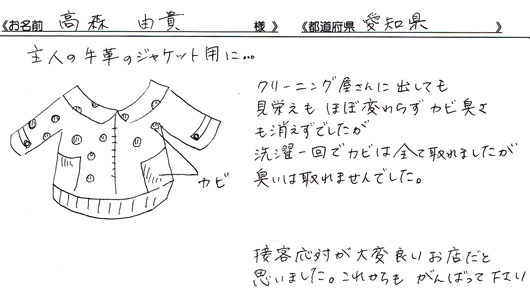 《お名前 高森 由貴 様》《都道府県 愛知県 》
主人の牛革のジャケット用に…
クリーニング屋さんに出しても
見栄えも ほぼ変わらず カビ臭さ
も消えずでしたが
洗濯一回でカビは全て取れましたが
臭いは取れませんでした。
カビ
接客応対が大変良いお店だと
思いました。これからも がんばって下さい